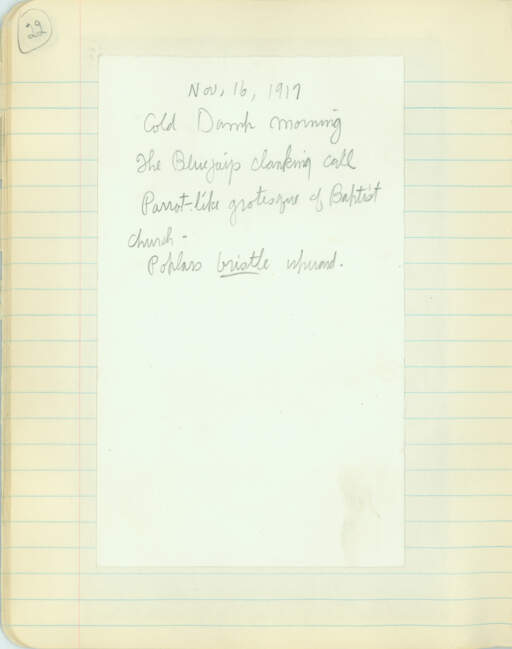 22
Nov. 16, 1917
Cold Damp morning
The Bluejays clanking call
Parrot-like grotesque of Baptist
church -
Poplars bristle upward.